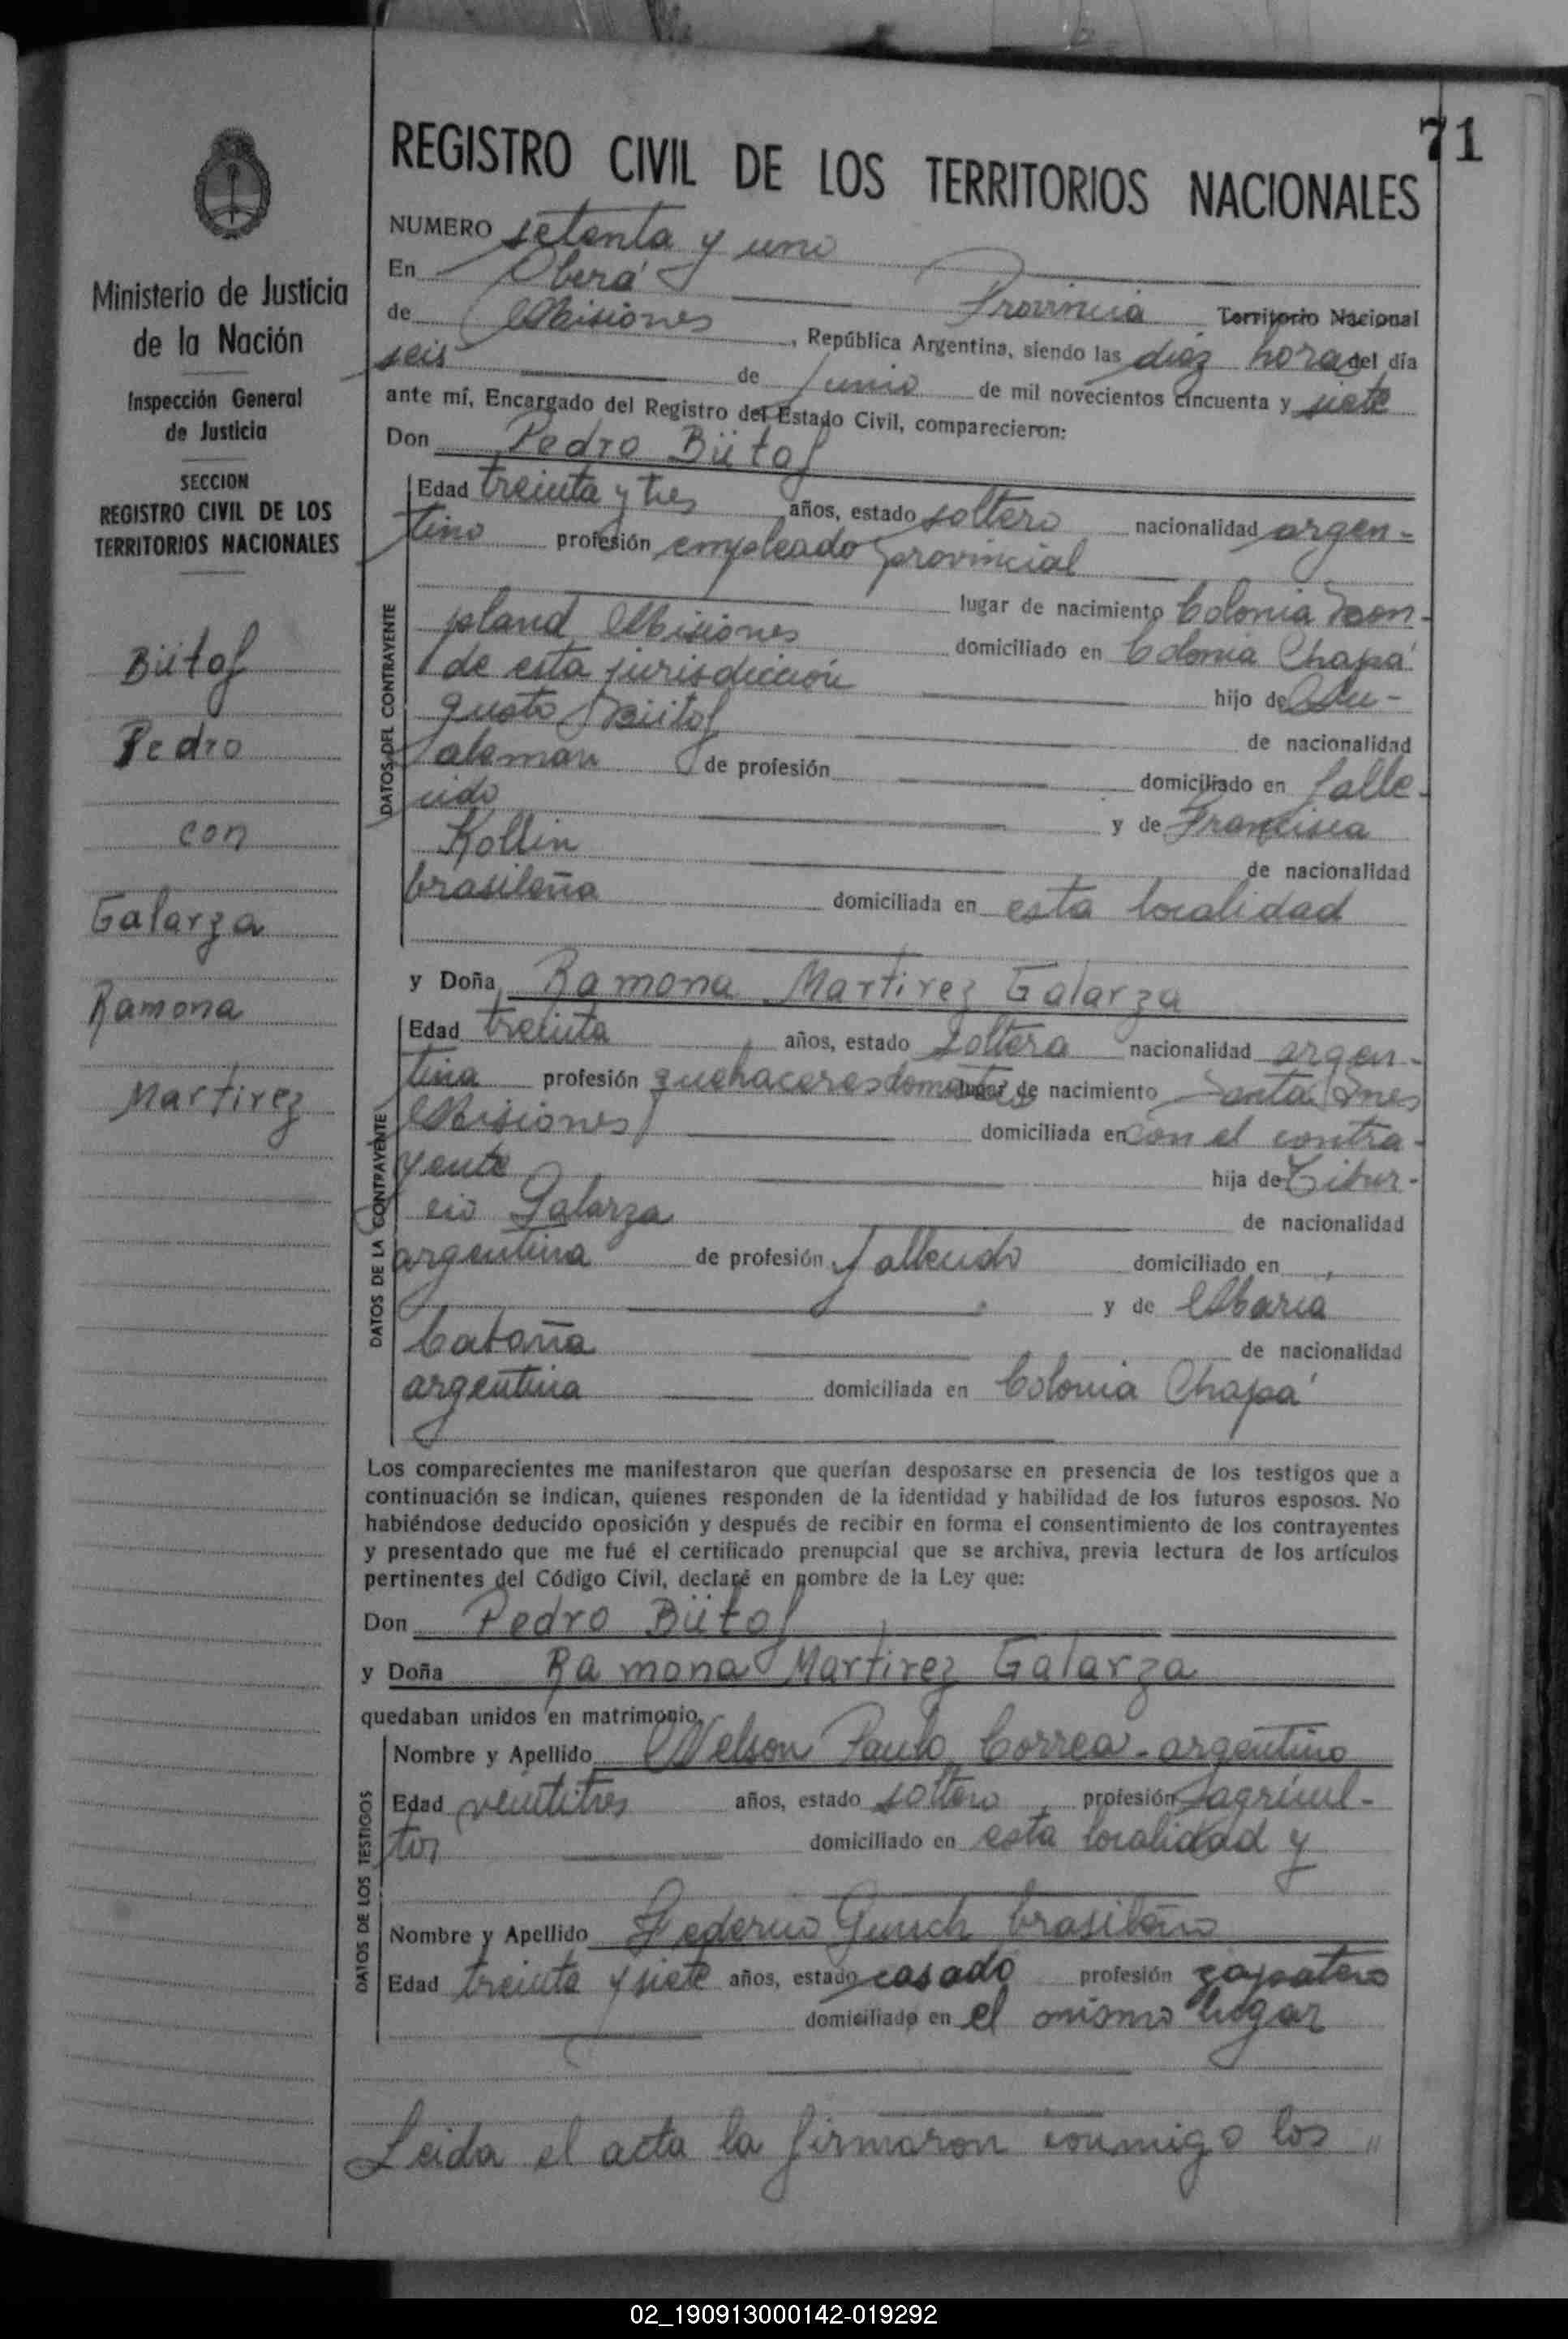 71
REGISTRO CIVIL DE LOS TERRITORIOS NACIONALES
Ministerio de Justicia
de la Nación
Inspección General
de Justicia
SECCION
REGISTRO CIVIL DE LOS
TERRITORIOS NACIONALES
Bütof
Pedro
con
Galarza
Ramona
Martirez
NUMERO setenta y uno
En Oberá Provincia Territorio Nacional
de Misiones, República Argentina, siendo las diez horas del día
seis de Junio de mil novecientos cincuenta y siete
ante mí, Encargado del Registro del Estado Civil, comparecieron:
Don Pedro Bütof
DATOS DEL CONTRAYENTE
Edad treinta y tres años, estado soltero nacionalidad argen-
tino profesión empleado provincial
lugar de nacimiento Colonia Bon-
pland Misiones domiciliado en Colonia Chapá
de esta jurisdicción hijo de Au-
gusto Bütof de nacionalidad
aleman de profesión domiciliado en falle-
cido y de Francisca
Kollin de nacionalidad
brasileña domiciliada en esta localidad
y Doña Ramona Martirez Galarza
DATOS DE LA CONTRAYENTE
Edad treinta años, estado soltera nacionalidad argen-
tina profesión quehaceres domesticos lugar de nacimiento Santa Ines
Misiones domiciliada en con el contra-
yente hija de Tibur-
cio Galarza de nacionalidad
argentina de profesión fallecido domiciliado en
y de Maria
de nacionalidad
argentina domiciliada en Colonia Chapá
Los comparecientes me manifestaron que querían desposarse en presencia de los testigos que a
continuación se indican, quienes responden de la identidad y habilidad de los futuros esposos. No
habiéndose deducido oposición y después de recibir en forma el consentimiento de los contrayentes
y presentado que me fué el certificado prenupcial que se archiva, previa lectura de los artículos
pertinentes del Código Civil, declaré en nombre de la Ley que:
Don Pedro Bütof
y Doña Ramona Martirez Galarza
quedaban unidos en matrimonio.
DATOS DE LOS TESTIGOS
Nombre y Apellido Nelson Paulo Correa - argentino
Edad veintitres años, estado soltero profesión agricul-
tor domiciliado en esta localidad y
Nombre y Apellido Federico brasileño
Edad treinta y siete años, estado casado profesión zapatero
domiciliado en el mismo lugar
Leida el acta la firmaron conmigo los "
02_190913000142-019292